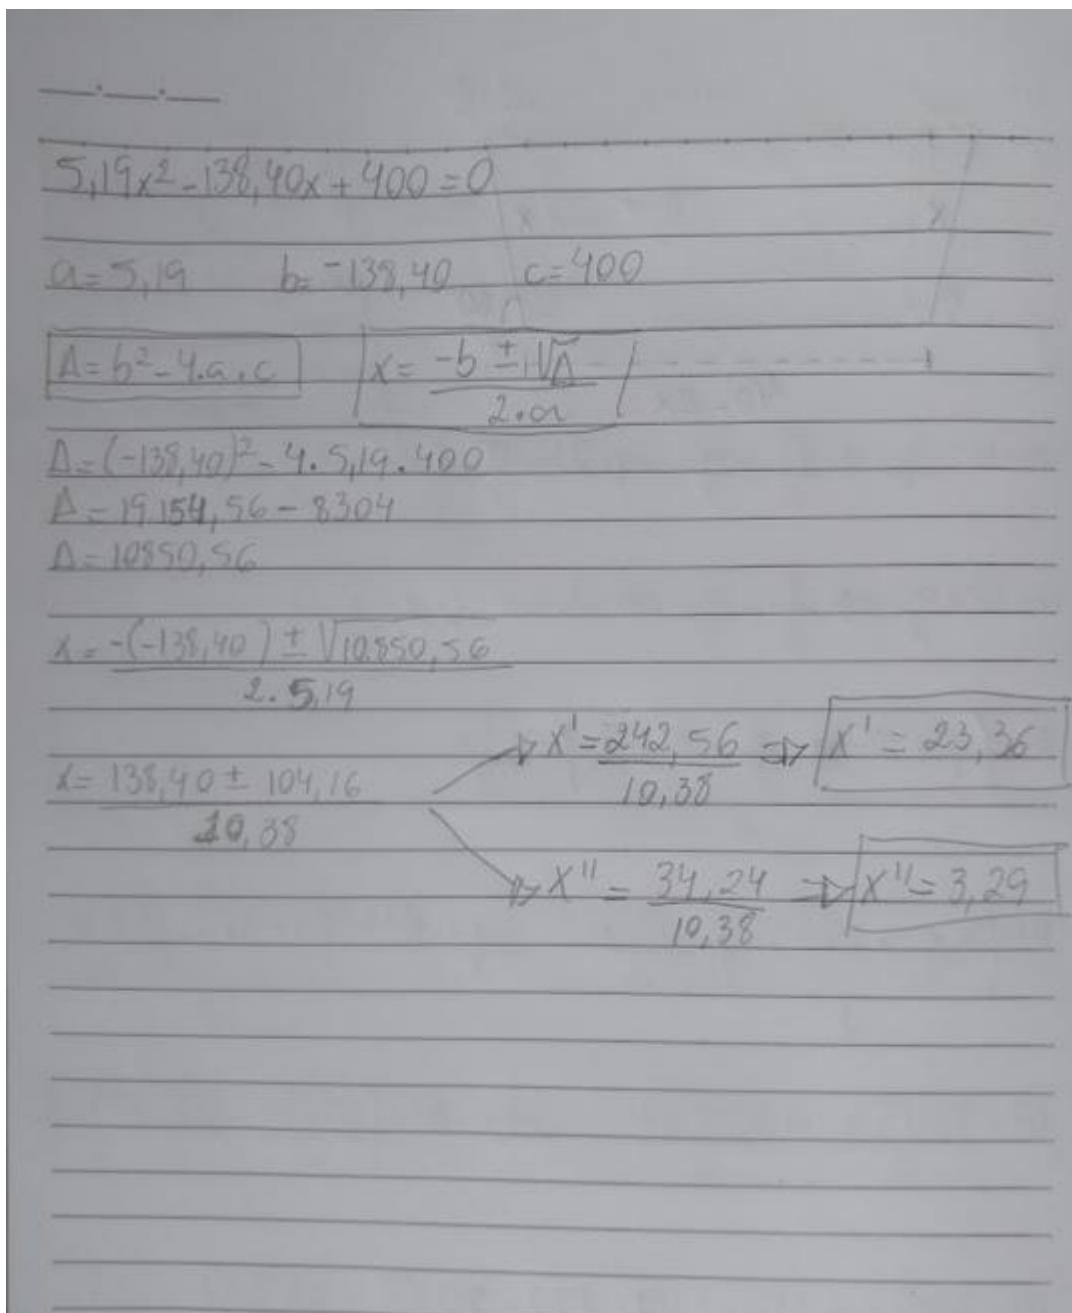 5,19x² - 138,40x + 400 = 0
a = 5,19 b = -138,40 c = 400
Δ = b² - 4.a.c x = -b ± √Δ / 2.a
Δ = (-138,40)² - 4.5,19.400
Δ = 19154,56 - 8304
Δ = 10850,56
x = -(-138,40) ± √10.850,56 / 2.5,19
x = 138,40 ± 104,16 / 10,38
x' = 242,56 / 10,38 ⇒ x' = 23,36
x'' = 34,24 / 10,38 ⇒ x'' = 3,29